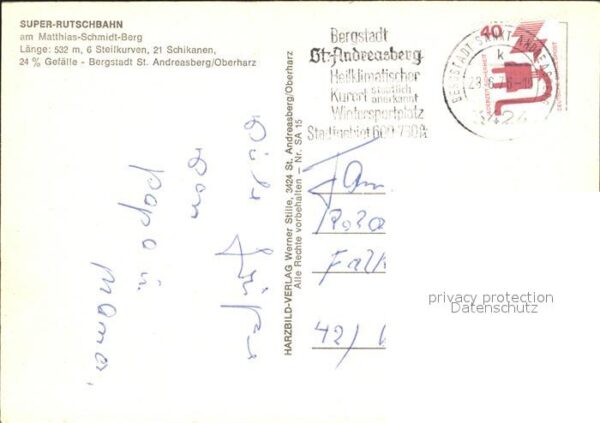 SUPER-RUTSCHBAHN
am Matthias-Schmidt-Berg
Länge: 532 m, 6 Steilkurven, 21 Schikanen,
24 % Gefälle - Bergstadt St. Andreasberg/Oberharz
Bergstadt
St. Andreasberg
Heilklimatischer
Kurort staatlich anerkannt
Wintersportplatz
Stadtgebiet 600-750
BERGSTADT SANKT ANDREASBERG
k
3424
40
HARZBILD-VERLAG Werner Stille, 3424 St. Andreasberg/Oberharz
Alle Rechte vorbehalten – Nr. SA 15
von
Papa u.
Mama.
Fam.
42/
privacy protection
Datenschutz